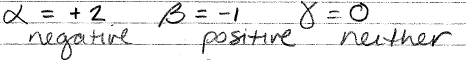 α = +2 β = -1 γ = 0
negative positive neither